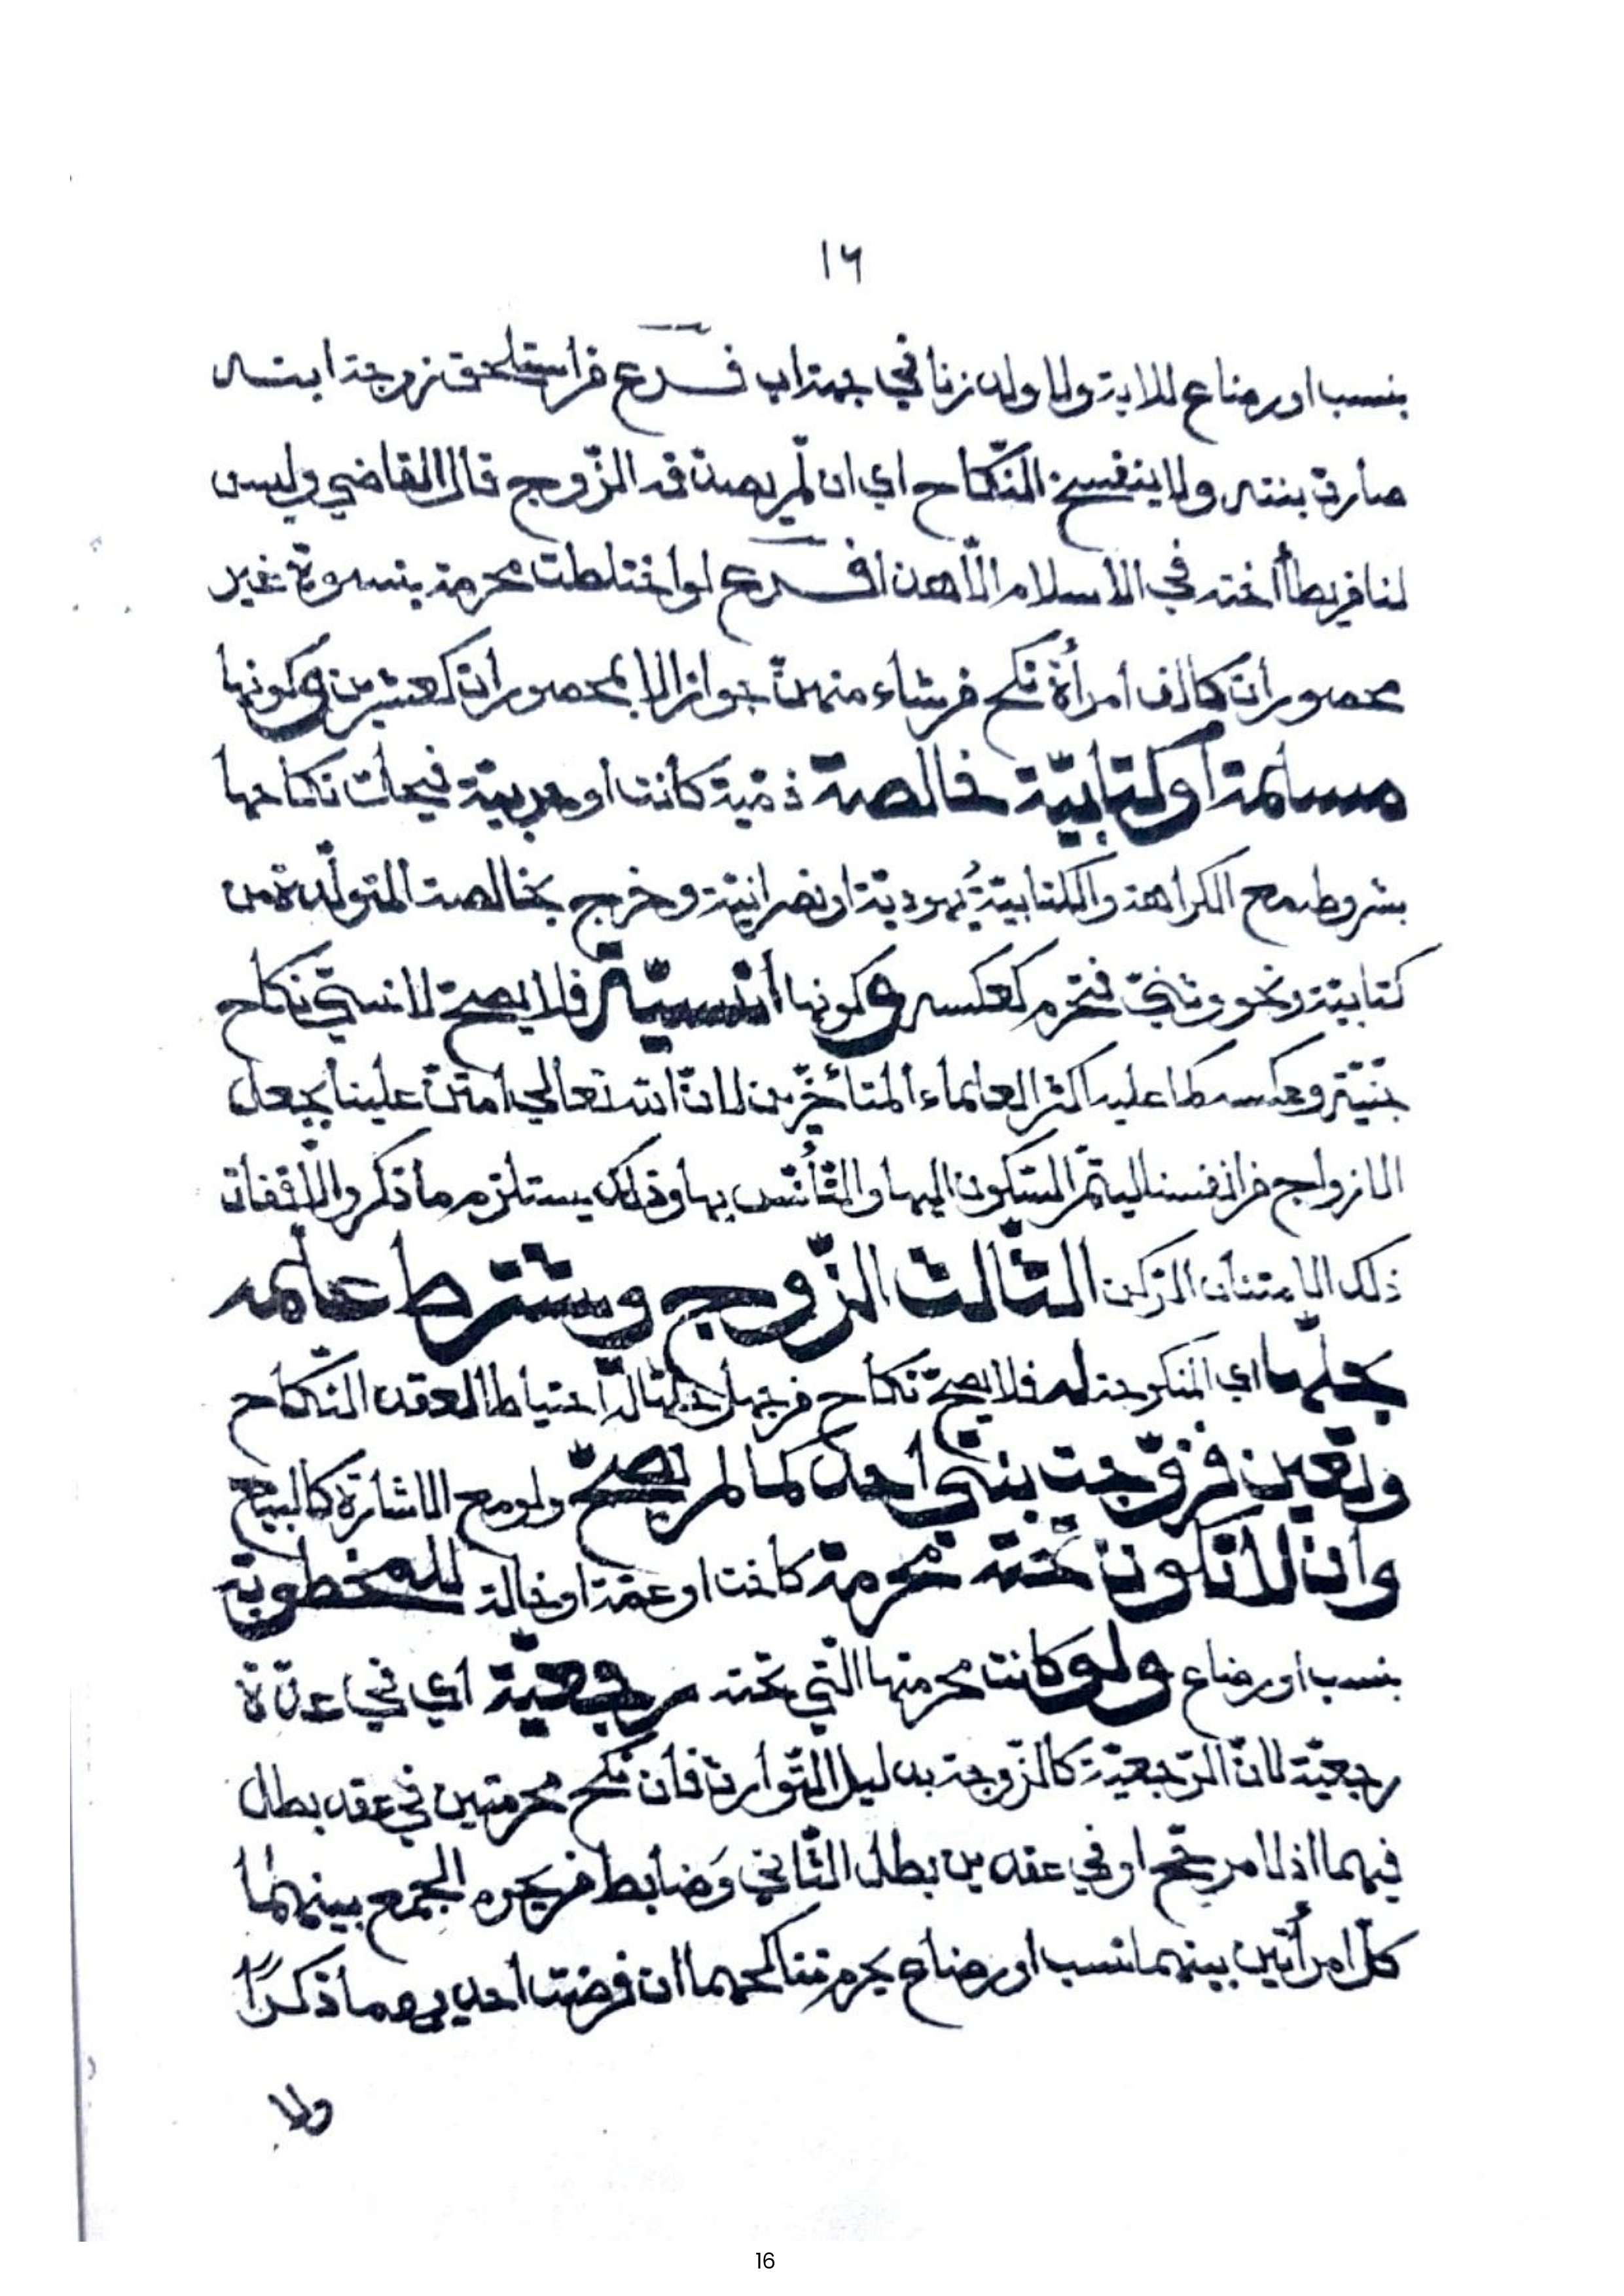 ١٦
بنسب او رضاع للاية ولا ولد زنا في جهة اب فرع من استلحق زوجة ابنه
صارت بنته ولا ينفسخ النّكاح اي ان لّم يصدّقه الزّوج قال القاضي وليس
لنا من يطأ اخته في الاسلام الّا هذا فرع لو اختلطت محرمة بنسوة غير
محصورات كالف امرأة نكح من شاء منهنّ جوازا لا بمحصورات كعشرين وكونها
مسلمة او كتابيّة خالصة ذمّيّة كانت او حربيّة فيحلّ نكاحها
بشروط مع الكراهة والكتابيّةُ يهوديّة او نصرانيّة وخرج بخالصة المتولّدة من
كتابيّة ونحو وثنيّ فتحرم كعكسه وكونها انسيّة فلا يصحّ لانسيّ نكاح
جنّيّة وعكسه كما عليه اكثر العلماء المتأخّرين لانّ الله تعالى امتنّ علينا بجعل
الازواج من انفسنا ليتمّ السّكون اليها والتّأنّس بها وذلك يستلزم ما ذكر والّا فات
ذلك الامتنان الرّكن الثّالث الزّوج ويشترط علمه
بحلّها اي المنكوحة له فلا يصحّ نكاح من جهل حلّها له احتياطا لعقد النّكاح
وتعين فزوّجت بنتي احدكما لم يصحّ ولو مع الاشارة كالبيع
وان لا تكون تحته محرمة كاخت او عمّة او خالة للمخطوبة
بنسب او رضاع ولو كانت محرمتها الّتي تحته رجعيّة اي في عدّة
رجعيّة لانّ الرّجعيّة كالزّوجة بدليل التّوارث فان نكح محرمتين في عقد بطل
فيهما اذ لا مرجّح او في عقدين بطل الثّاني وَضابط من يحرم الجمع بينهما
كلّ امرأتين بينهما نسب او رضاع يحرم تناكحهما ان فرضت احديهما ذكرًا
ولا
16